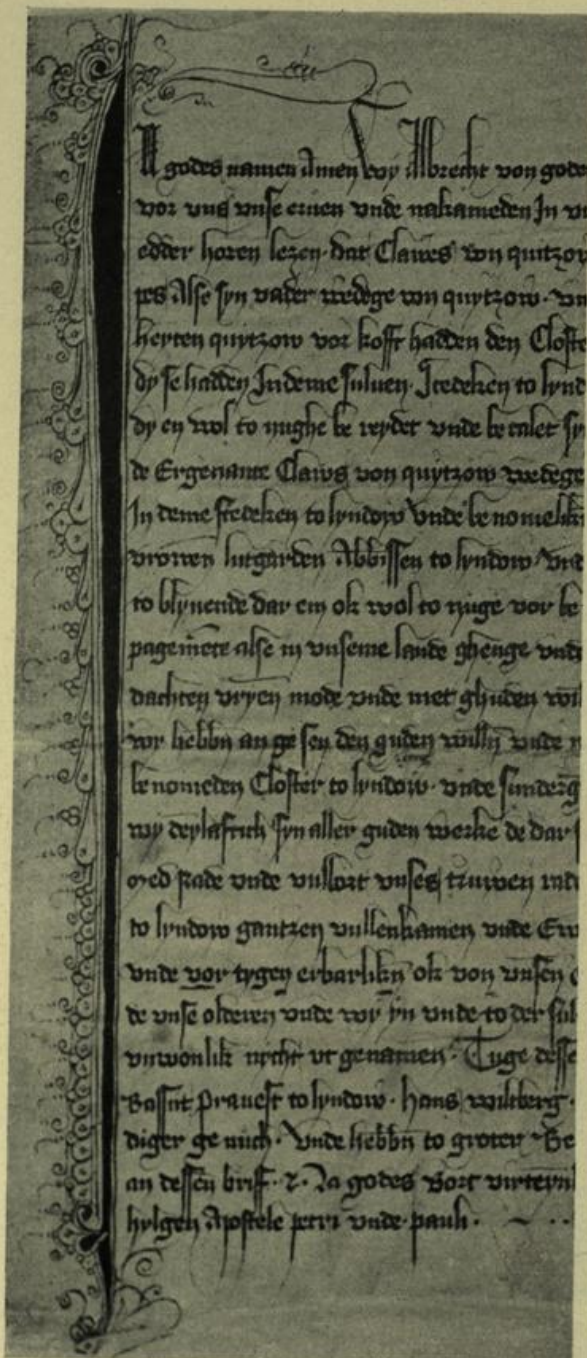 In godes namen Amen Wy Albrecht von gode
vor vns vnse eruen vnde nakameden In v
edder horen lezen · dat Clawes von quitzow
pes Alse syn vader wedege von quytzow · vn
heyten quytzow vor kofft hadden den Closte
dy se hadden Indeme suluen Stedeken to lynd
dy en wol to nughe be reydet vnde betalet sy
de Ergenante Claws von quytzow wedege
In deme stedeken to lyndow vnde benomelik
vrowen lutgarden Abbissen to lyndow · vnd
to blyuende dar em ok wol to nuge vor be
pagimēte alse in vnseme lande ghenge vnd
dachten vryen mode vnde met ghuden
wy hebbn an ge sen den guden willn vnde
be nomeden Closter to lyndow · vnde sunderg
wy deylaftich syn aller guden werke de dar
Med Rade vnde vullort vnses truwen
to lyndow gantzen vullenkamen vnde Erw
vnde vor tygen erbarlikn ok von vnsen
de vnse olderen vnde wy yn vnde to der sul
vnwonlik nycht vt genamen · Tuge desse
Bassut Prauest to lyndow · Hans wiltberg ·
diger ge nuch · Vnde hebbn to groter Be
an dessen briff · z · Na godes Bort virteyn
hylgen Apostele petri vnde · pauli ·